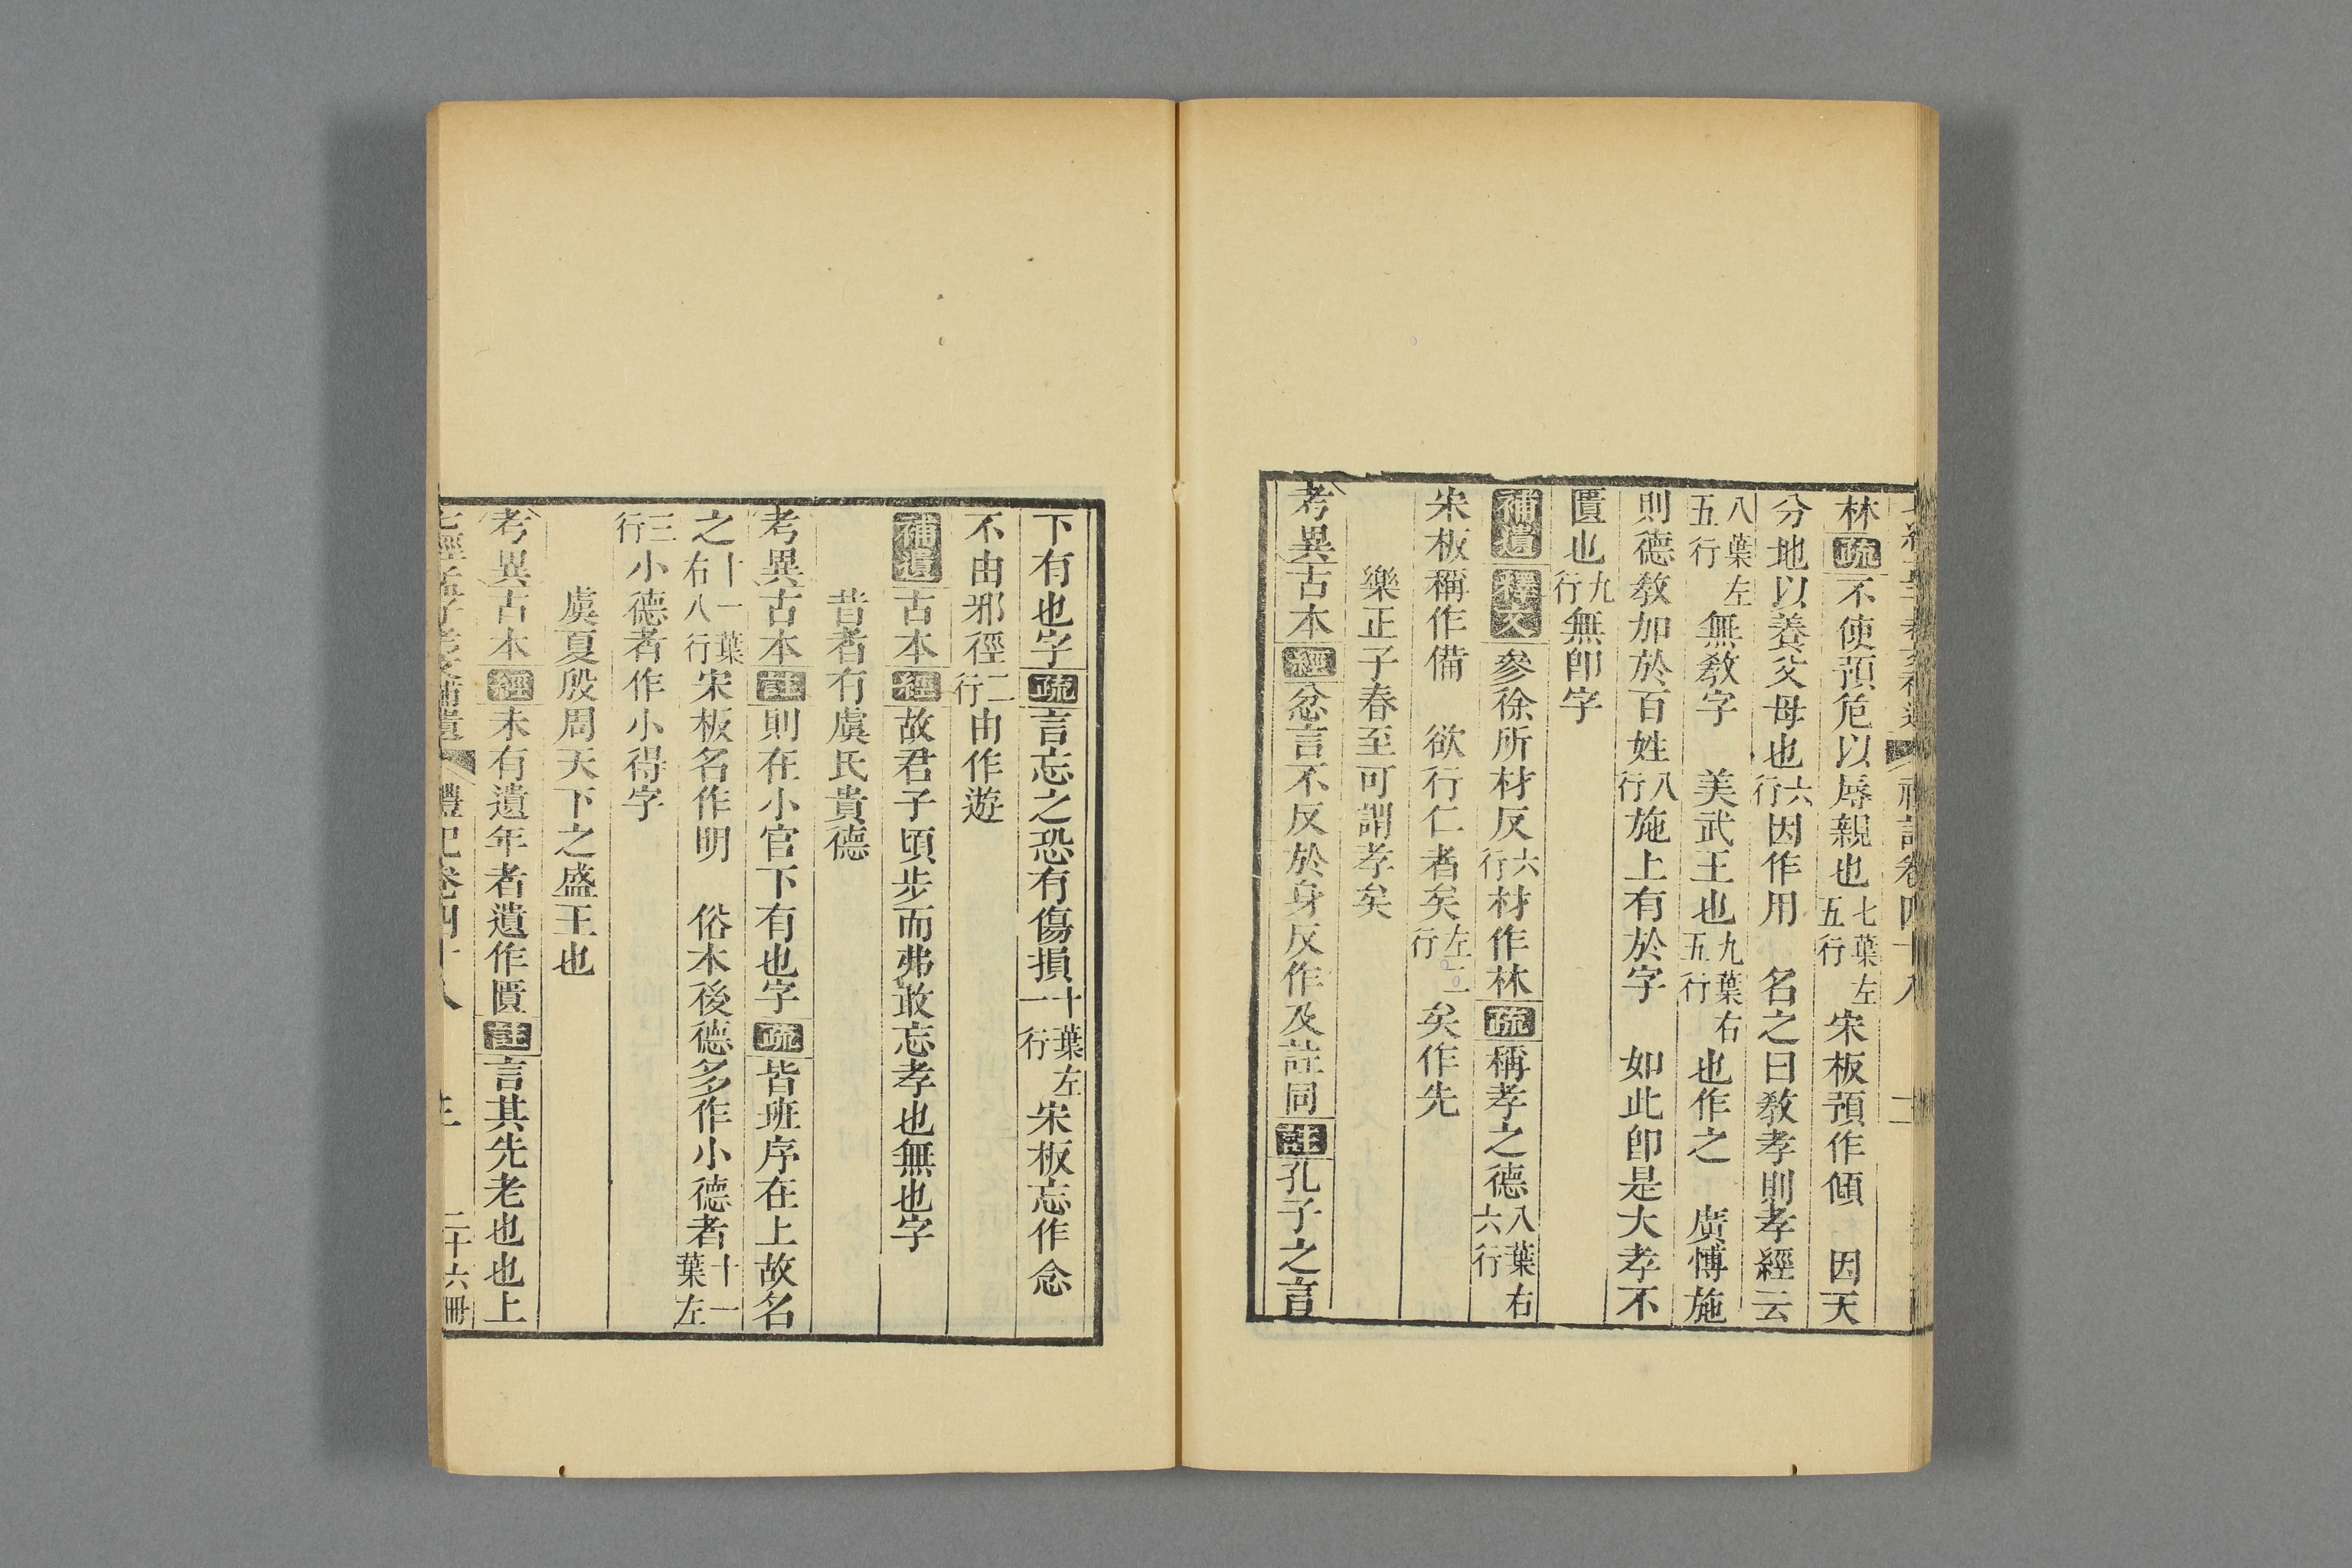 林疏不使預危以辱親也七葉左五行宋板預作傾　因天
分地以養父母也六行因作用　名之曰教孝則孝經云
八葉左五行無教字　美武王也九葉右五行也作之　廣愽施
則德教加於百姓八行施上有於字　如此卽是大孝不
匱也九行無卽字
補遺釋文參徐所材反六行材作林疏稱孝之德八葉右六行
宋板稱作備　欲行仁者矣左二行矣作先
樂正子春至可謂孝矣
考異古本經忿言不反於身反作及註同註孔子之言
下有也字疏言忘之恐有傷損十葉左一行宋板忘作念
不由邪徑二行由作遊
補遺古本經故君子頃步而弗敢忘孝也無也字
昔者有虞氏貴德
考異古本註則在小官下有也字疏皆班序在上故名
之十一葉右八行宋板名作明　俗本後德多作小德者十一葉左
三行小德者作小得字
虞夏殷周天下之盛王也
考異古本經未有遺年者遺作匱註言其先老也也上
禮記卷四十八　二十六冊